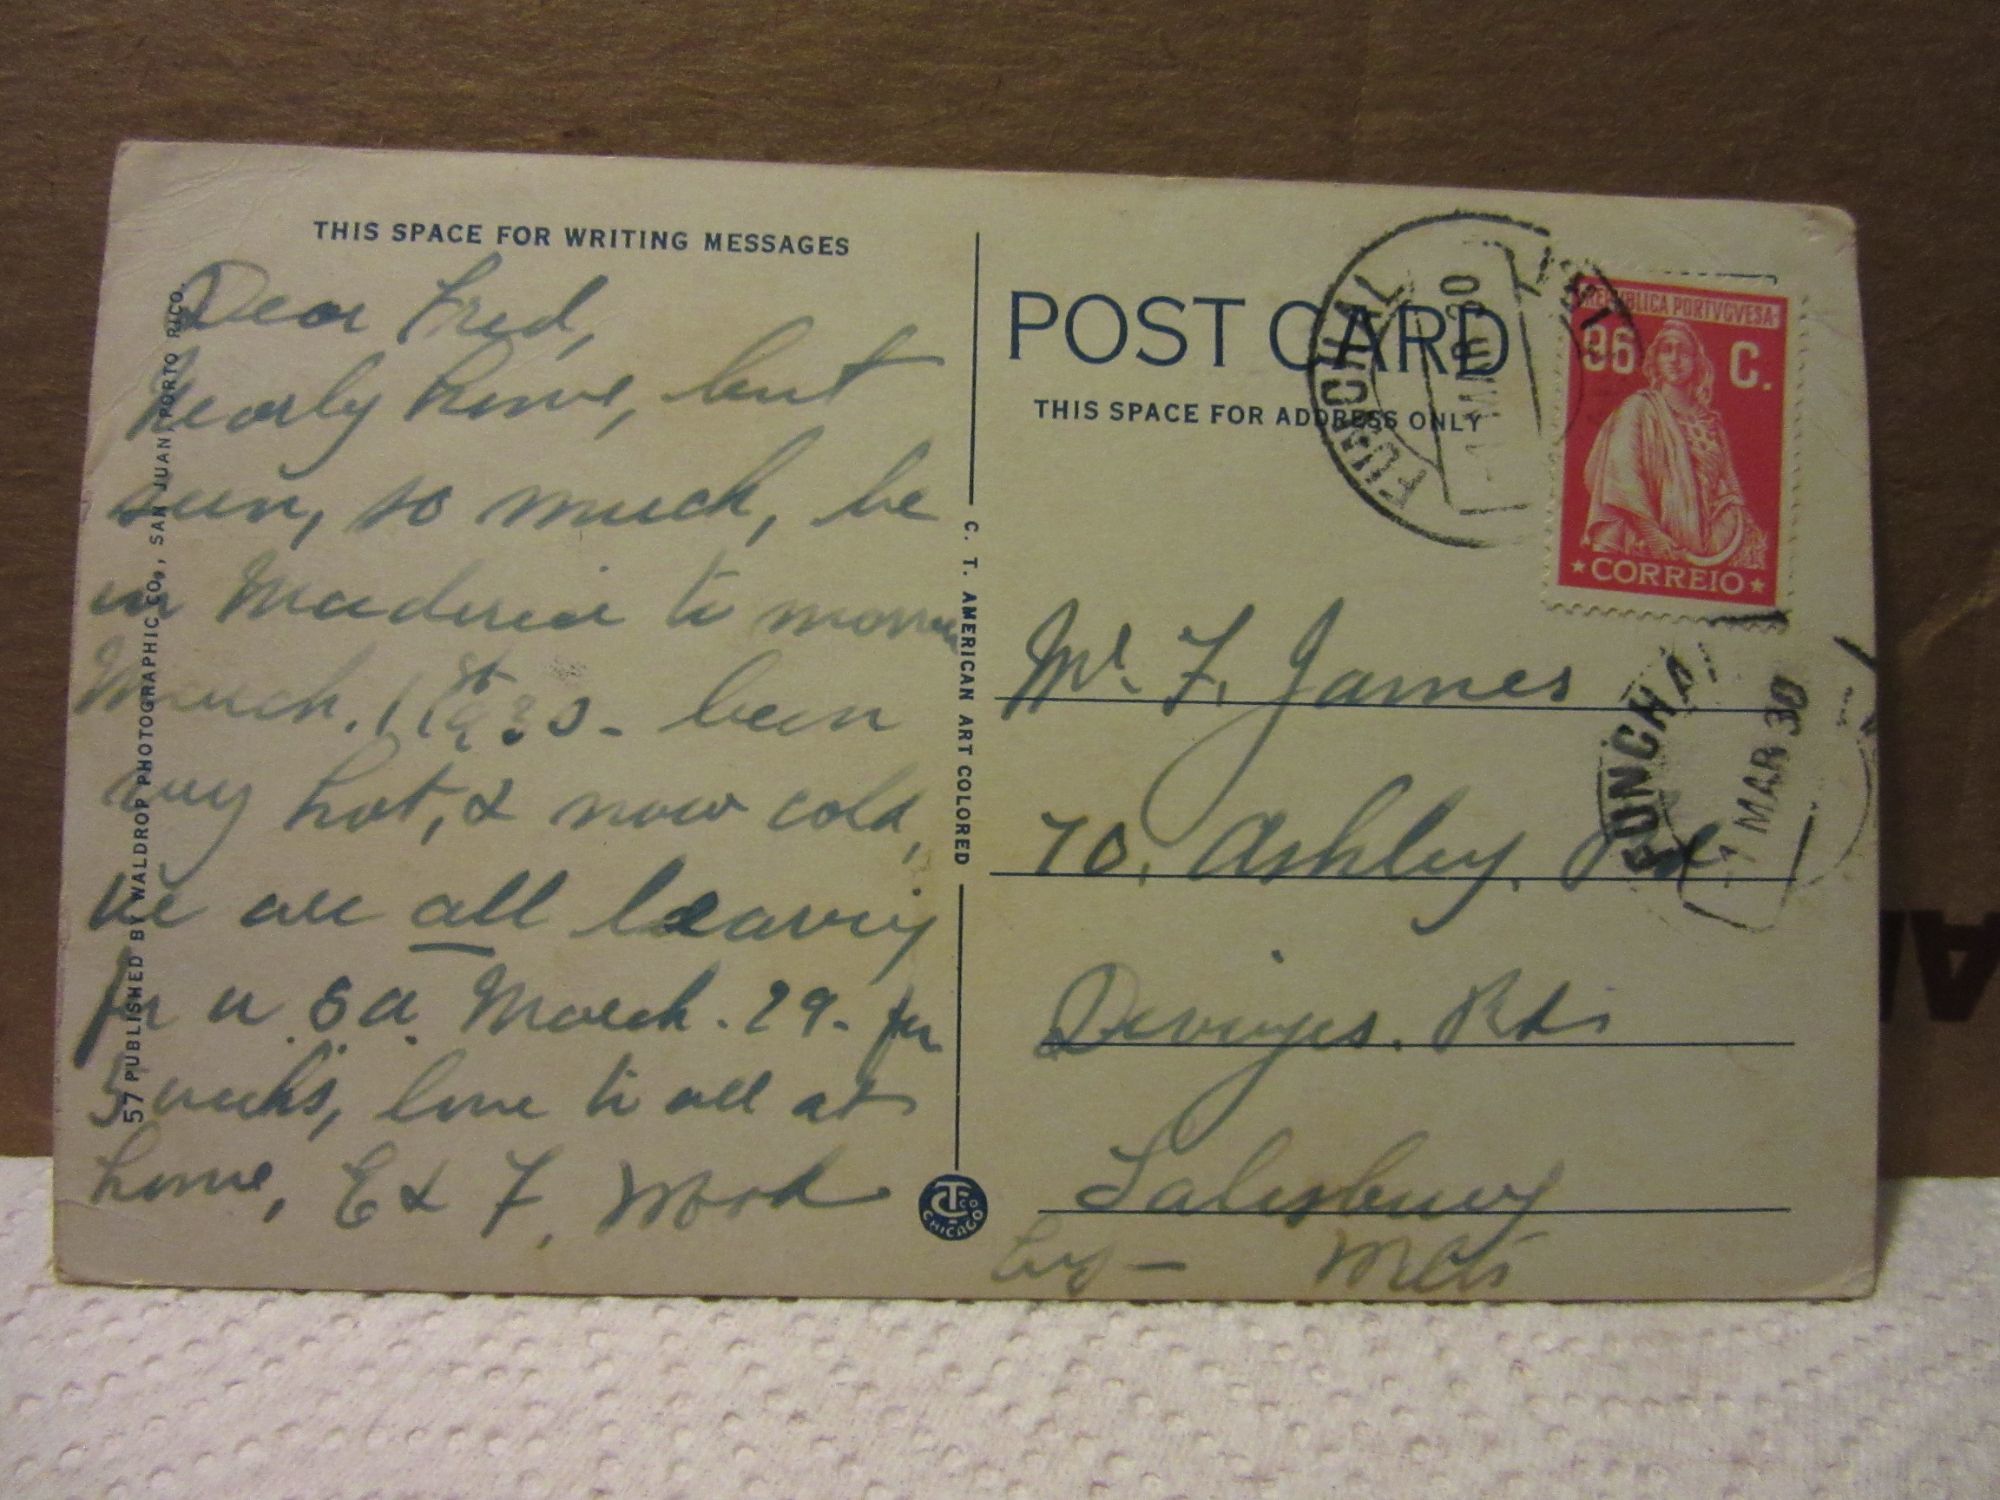 THIS SPACE FOR WRITING MESSAGES
Dear Fred,
Nearly home, but
seen, so much, be
in Maderia to morrow
March. 1st 1930 - been
very hot, & now cold,
We are all leaving
for U.S.A. March. 29. for
5 weeks, love to all at
home, E & F.
57 PUBLISHED BY WALDROP PHOTOGRAPHIC CO., SAN JUAN PORTO RICO.
C. T. AMERICAN ART COLORED
CT CO
CHICAGO
POST CARD
THIS SPACE FOR ADDRESS ONLY
FUNCHAL
-1 MAR 30
REPUBLICA PORTVGVESA
96 C.
CORREIO
FUNCHA
-1 MAR 30
Mr. F. James
70, Ashley. Rd
Devizes. Rd
Salisbury